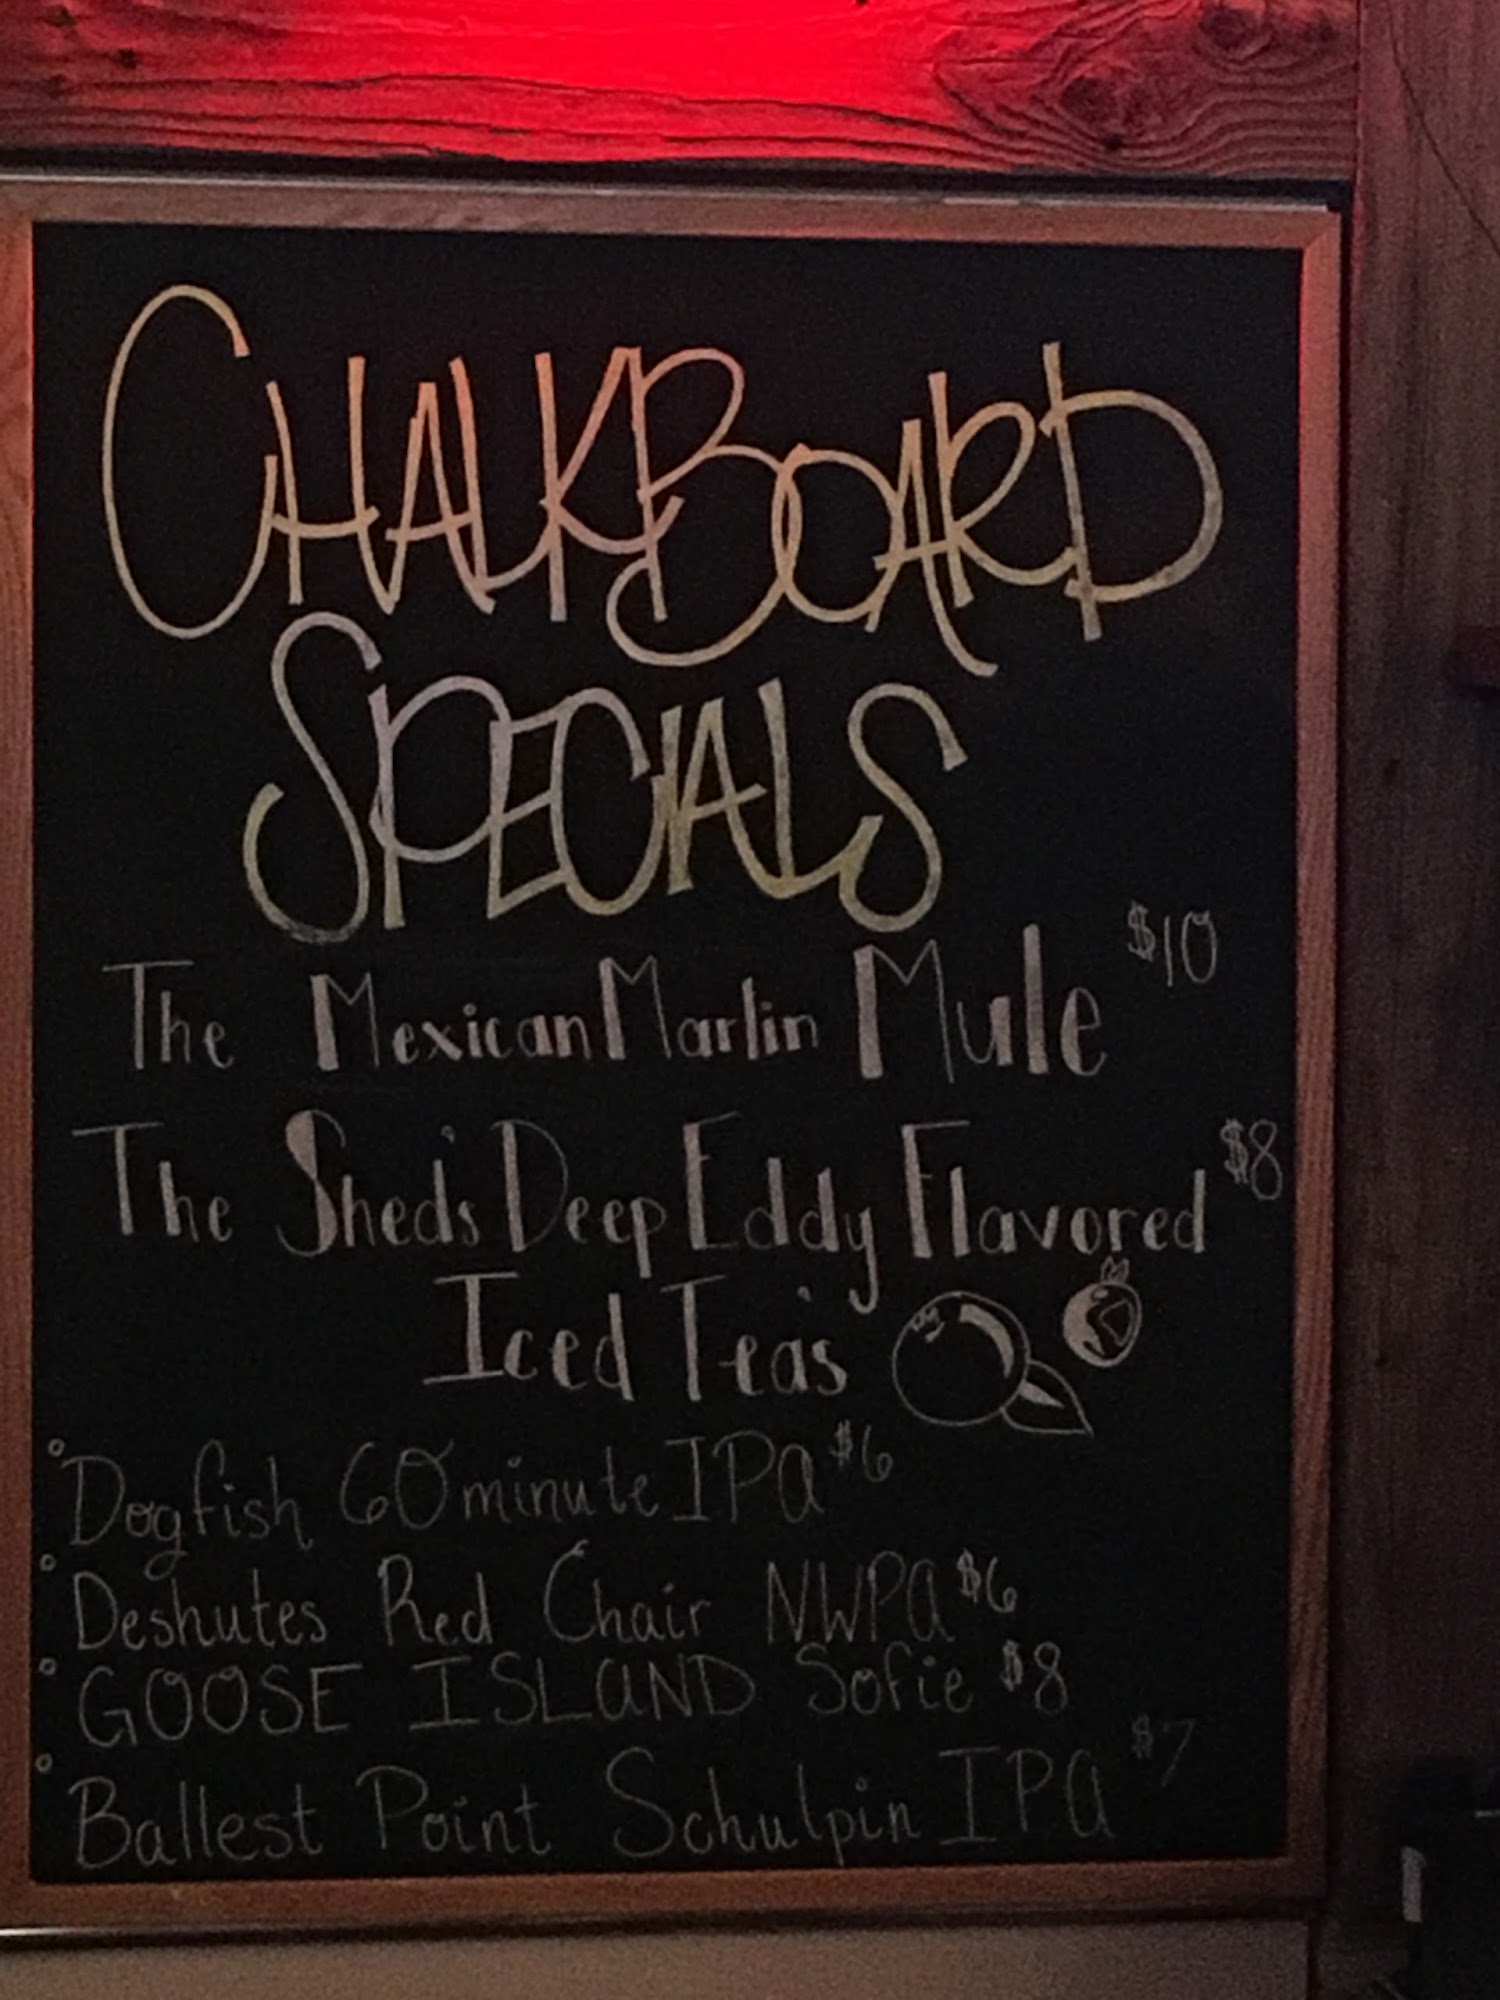 CHALKBOARD
SPECIALS
The Mexican Marlin Mule $10
The Shed's Deep Eddy Flavored $8
Iced Tea's
Dogfish 60 minute IPA $6
Deshutes Red Chair NWPA $6
GOOSE ISLAND Sofie $8
Ballest Point Schulpin IPA $7